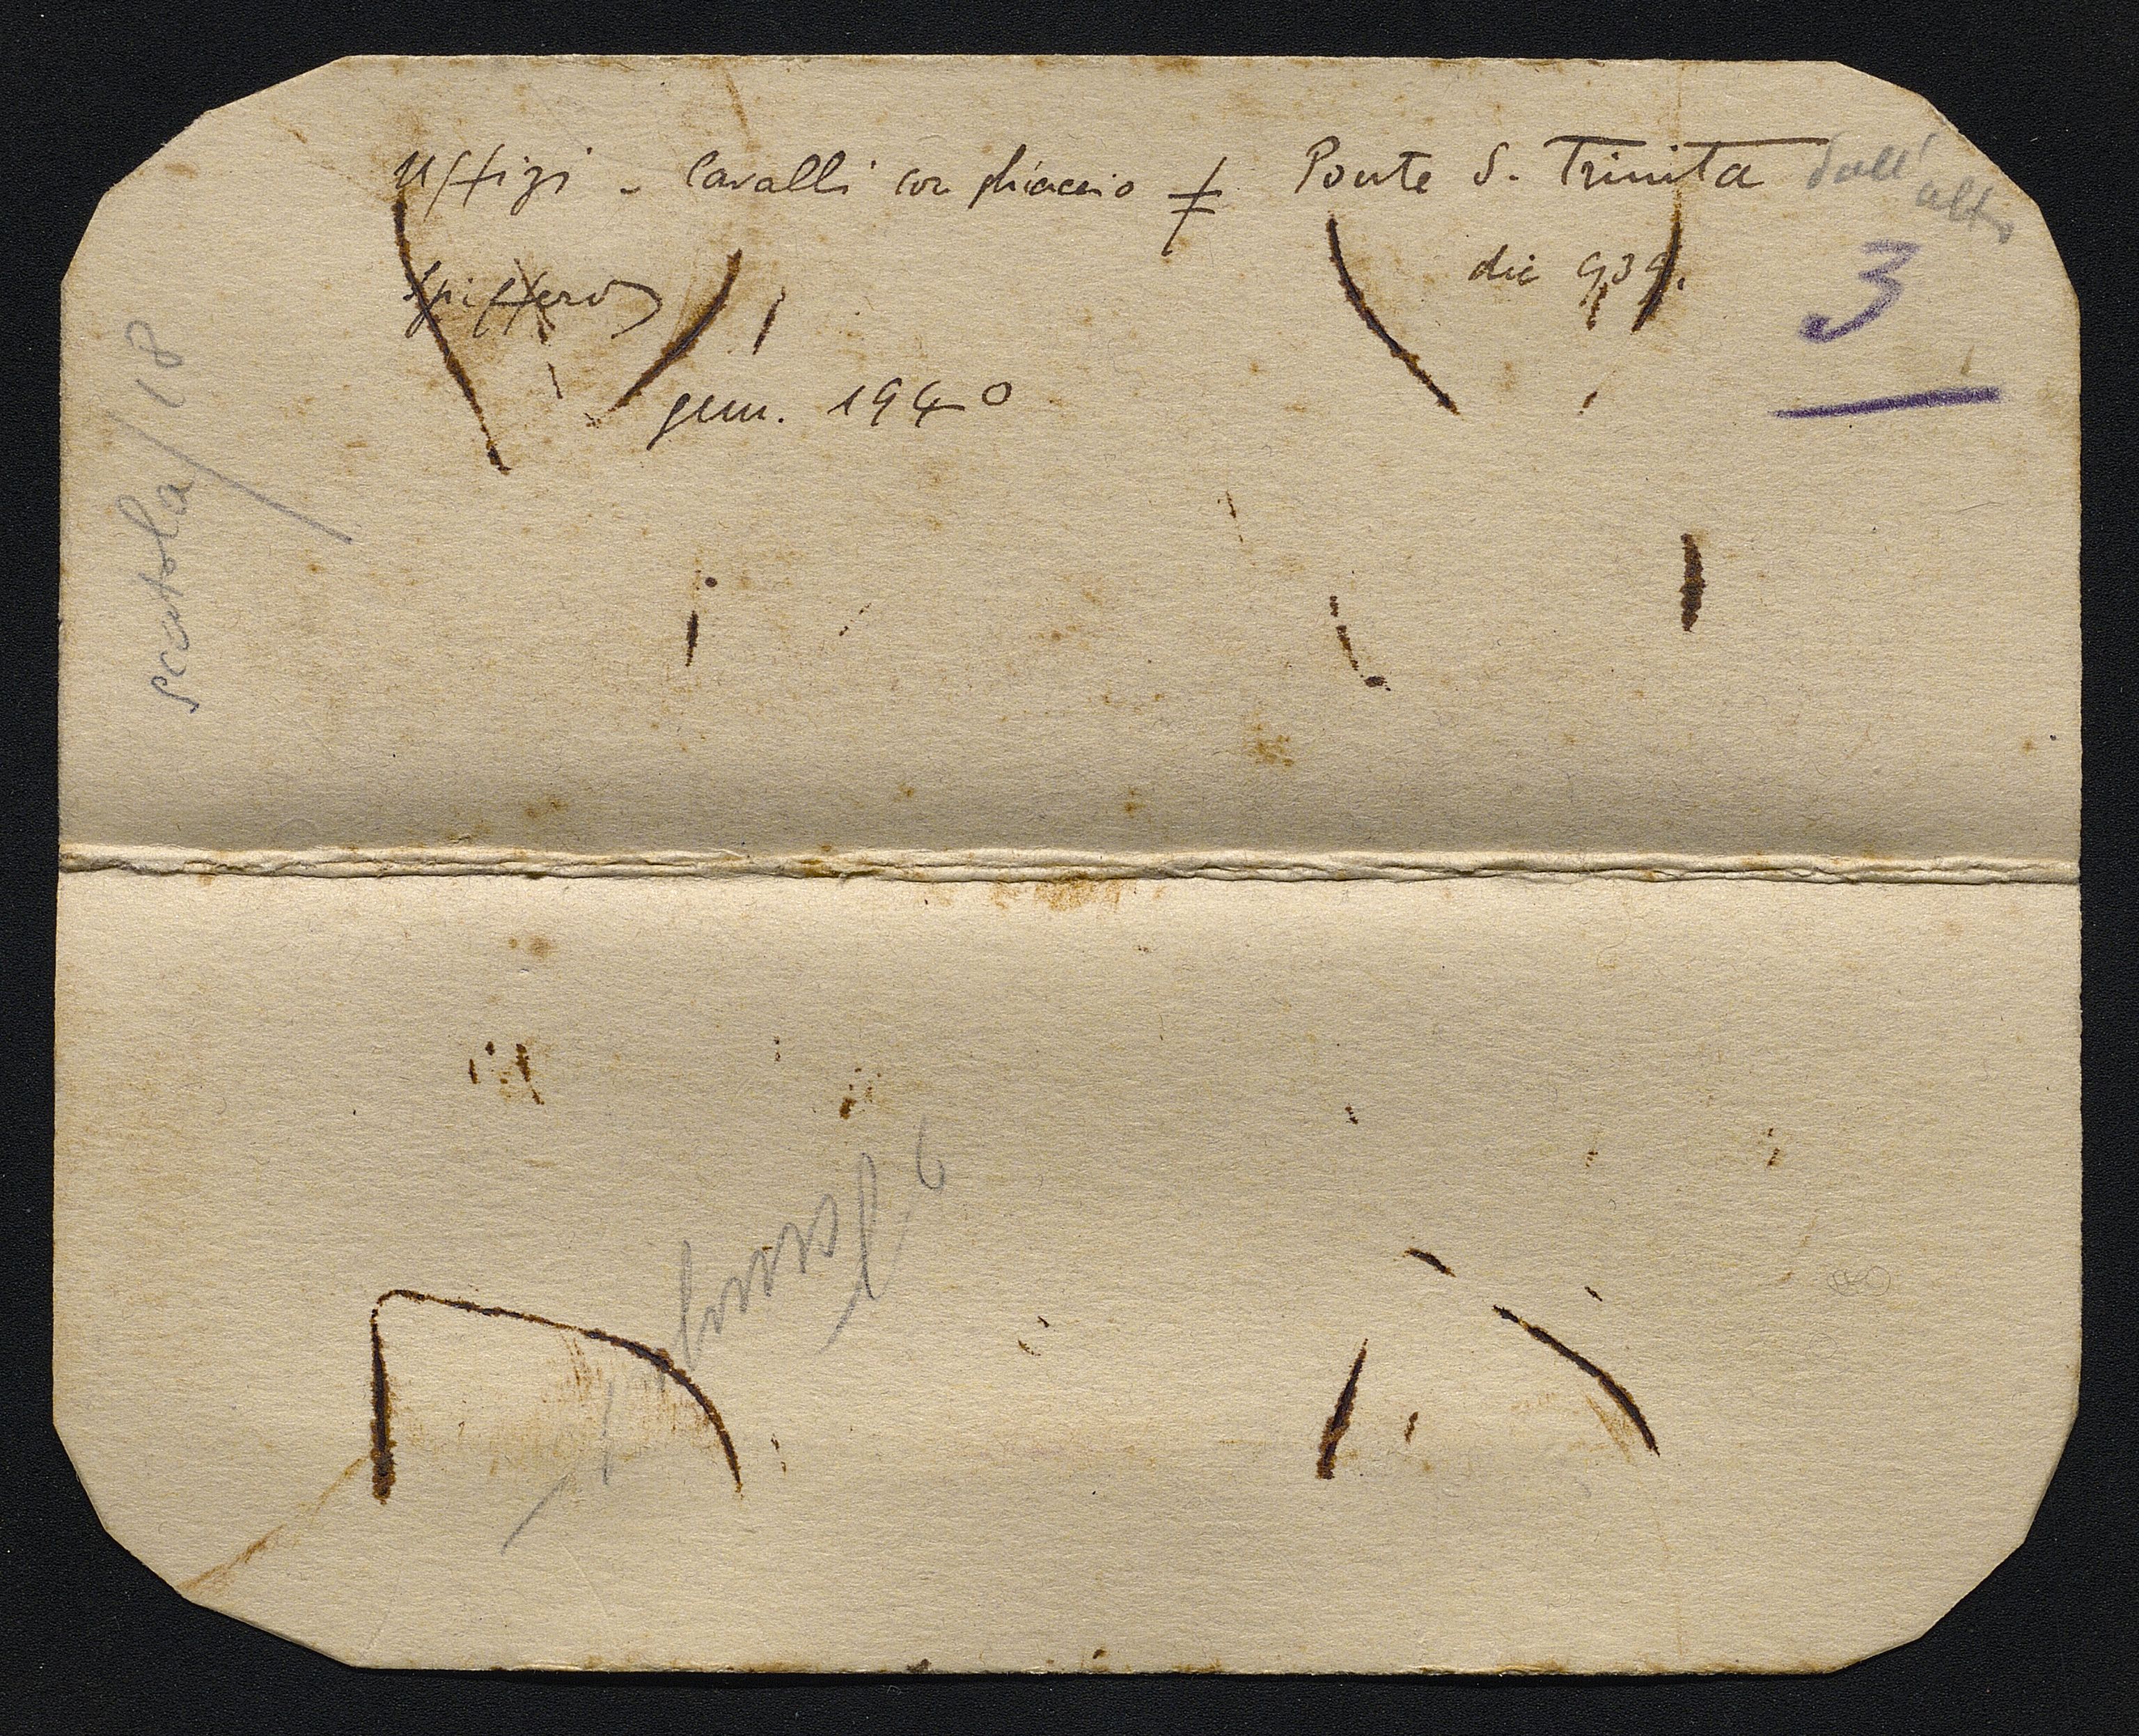 Uffizi - Cavalli con ghiaccio ≠ Ponte S. Trinita dall'
alto
dic 939.
3
gen. 1940
scatola/18